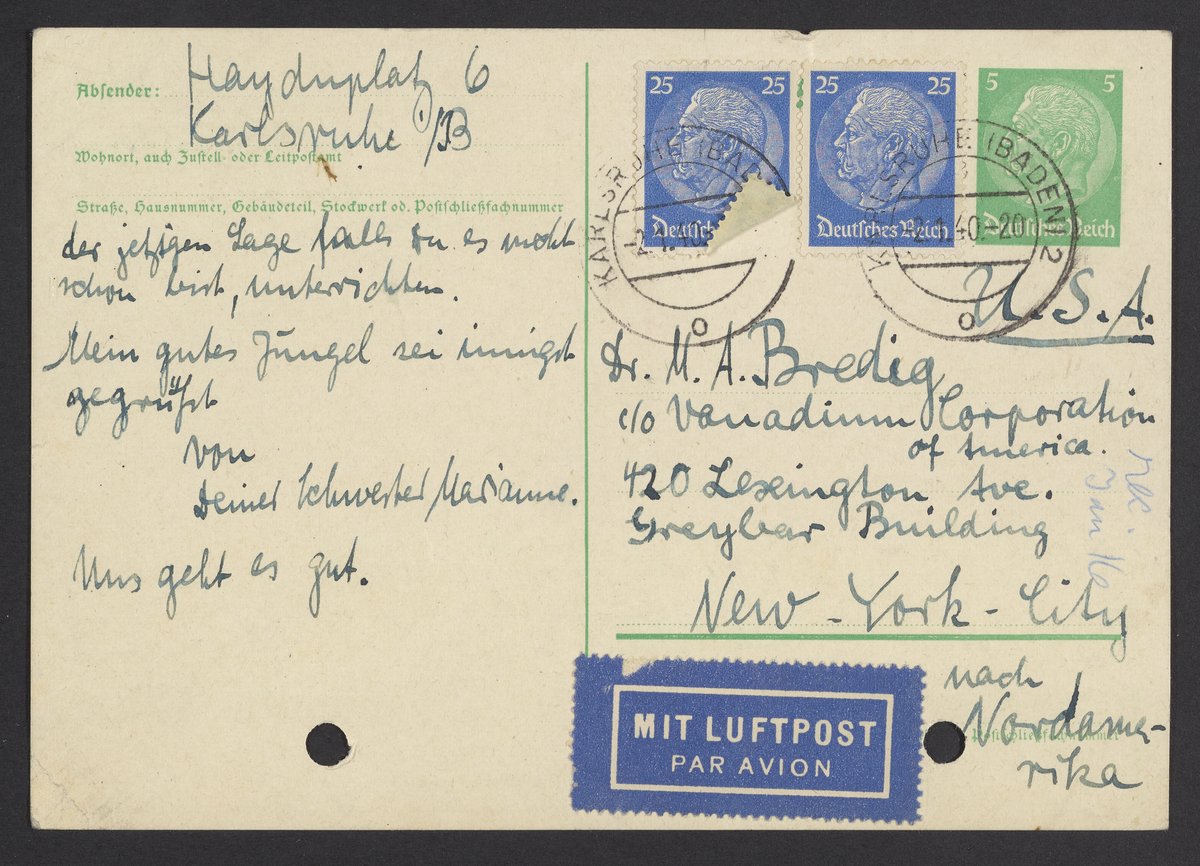 Absender:
Haydnplatz 6
Karlsruhe i/B
Wohnort, auch Zustell- oder Leitpostamt
Straße, Hausnummer, Gebäudeteil, Stockwerk od. Postschließfachnummer
der jetzigen Lage falls Du es nicht
schon bist, unterrichten.
Mein gutes Jüngel sei innigst
gegrüßt
von
Deiner Schwester Marianne.
Uns geht es gut.
25 25
Deutsch
25 25
Deutsches Reich
5 5
Deutsches Reich
KARLSRUHE (BADEN)
-2.1.40.
KARLSRUHE (BADEN) 2
-2.1.40.-20
U.S.A.
Dr. M. A. Bredig
c/o Vanadium Corporation
of America.
420 Lexington Ave.
Greybar Building
New-York-City
nach
Nordame-
rika
MIT LUFTPOST
PAR AVION